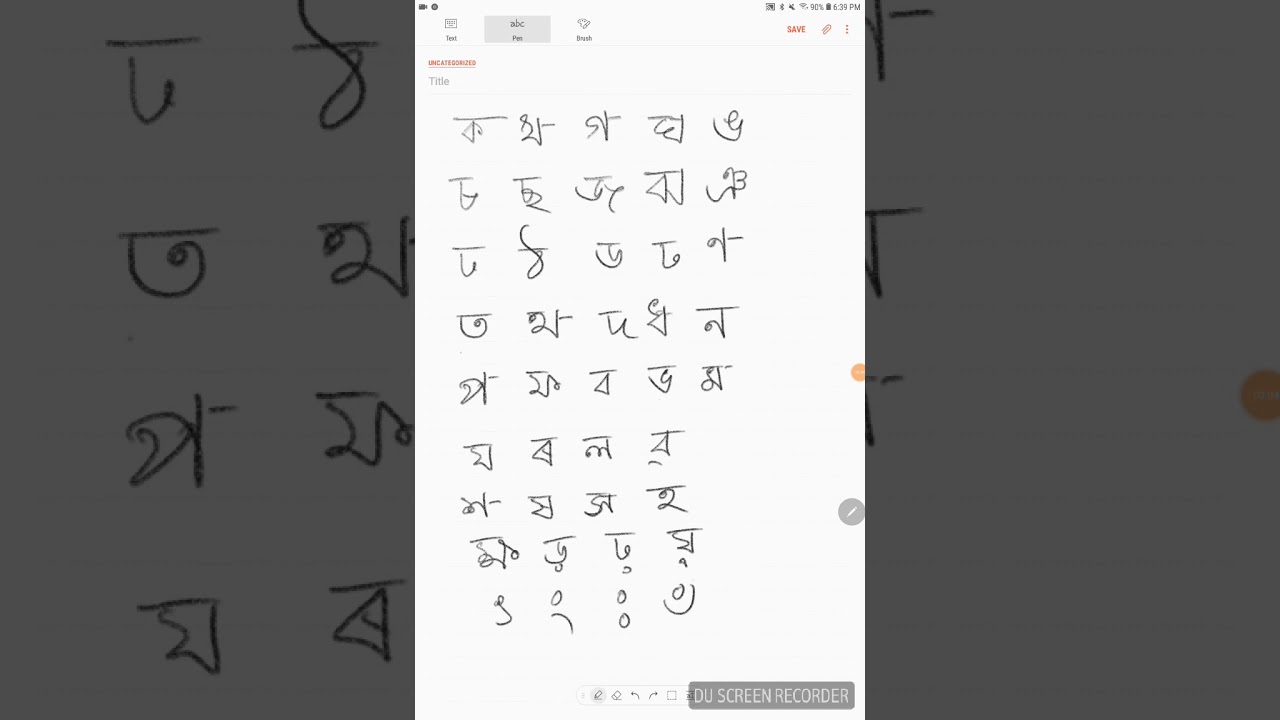 90% 6:39 PM
Text Pen Brush SAVE
abc
UNCATEGORIZED
Title
ক খ গ ঘ ঙ
চ ছ জ ঝ ঞ
ট ঠ ড ঢ ণ
ত থ দ ধ ন
প ফ ব ভ ম
য ৰ ল ৱ
শ ষ স হ
ক্ষ ড় ঢ় য়
ৎ ং ঃ ঁ
DU SCREEN RECORDER